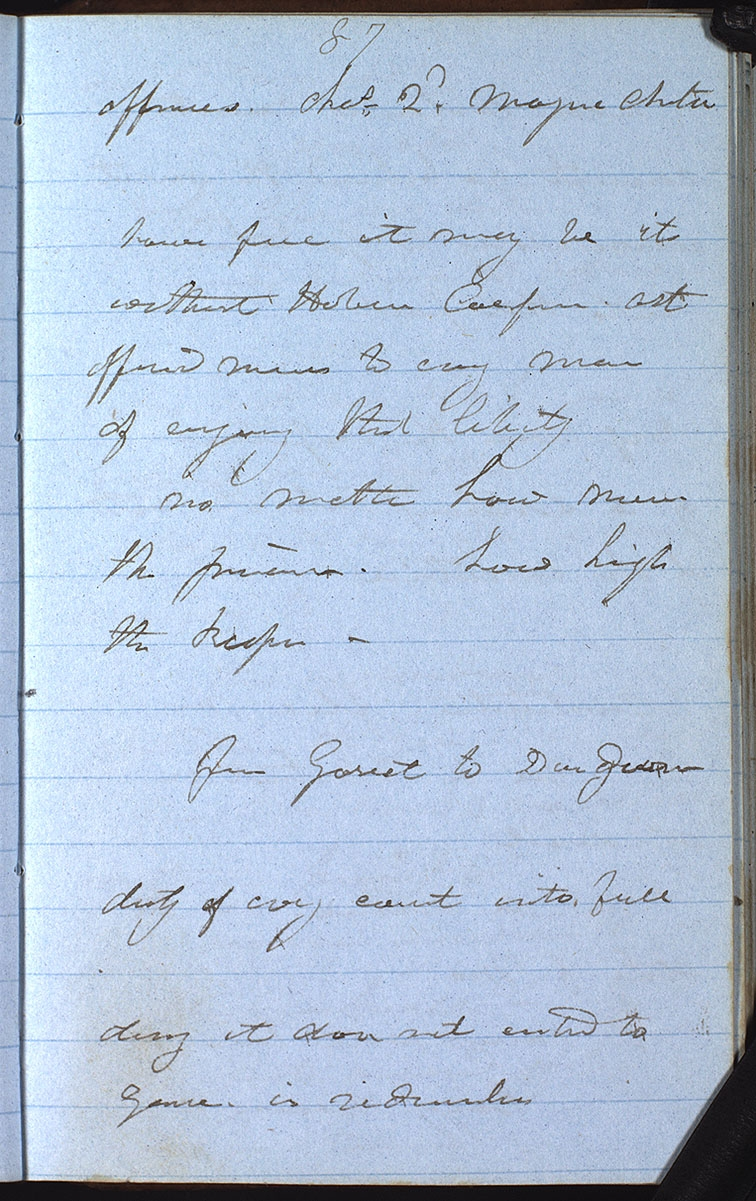 87
offences. Chas. 2d. Magna Charta
however free it may be its
without Habeas Corpus. act
afford means to every man
of enjoying that liberty
no matter how mean
the prisoner. how high
the keeper -
From Garret to Dungeon
duty of every court into. full
deny it does not entitled to
Game. is